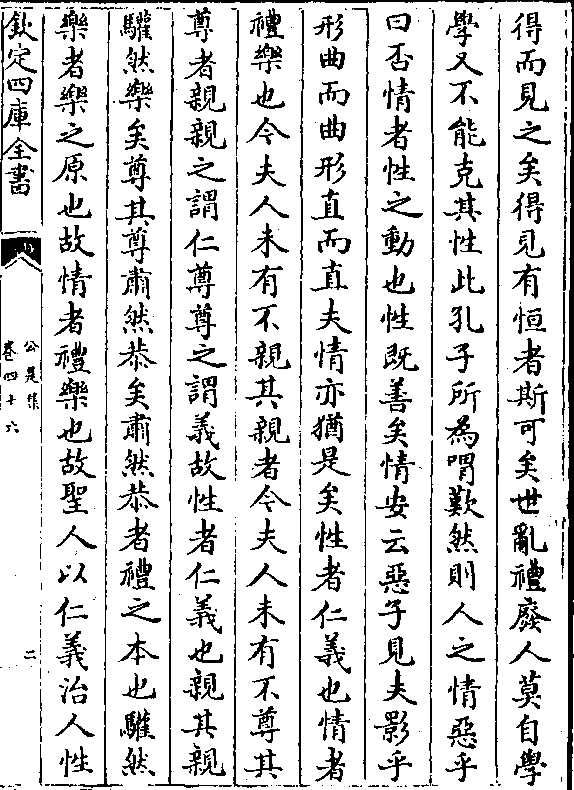 得而見之矣得見有恒者斯可矣世亂禮廢人莫自學
學又不能克其性此孔子所為喟歎然則人之情惡乎
曰否情者性之動也性既善矣情安云惡子見夫影乎
形曲而曲形直而直夫情亦猶是矣性者仁義也情者
禮樂也今夫人未有不親其親者今夫人未有不尊其
尊者親親之謂仁尊尊之謂義故性者仁義也親其親
驩然樂矣尊其尊肅然恭矣肅然恭者禮之本也驩然
樂者樂之原也故情者禮樂也故聖人以仁義治人性
欽定四庫全書
公是集
卷四十六
二